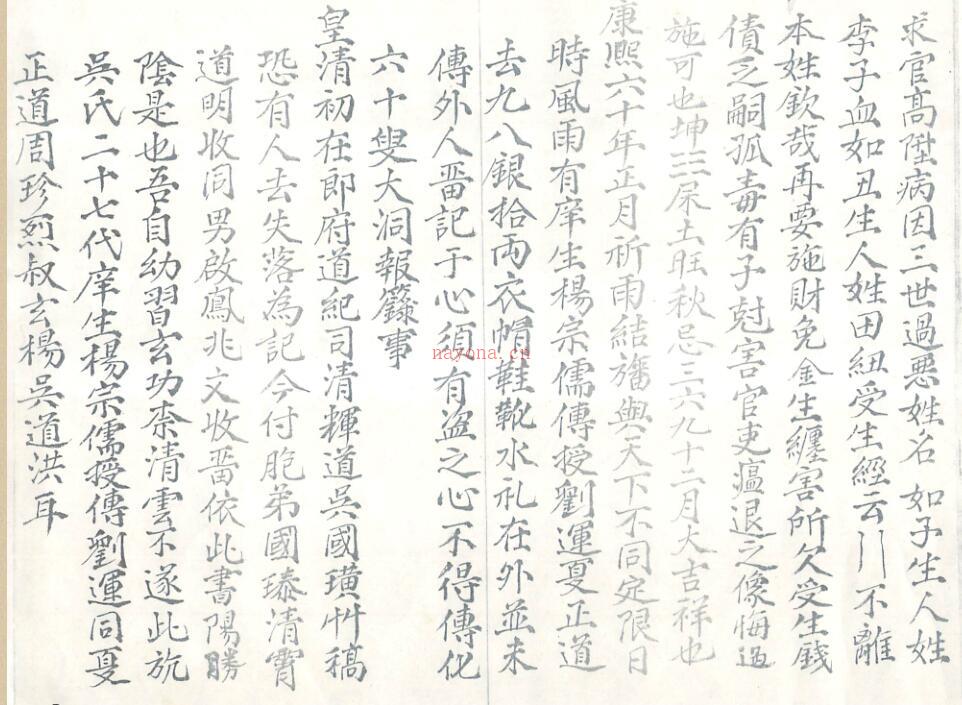 求官高陞病因三世過悪姓名 如子生人姓
李子血如丑生人姓田紐受生經云 不離
本姓欽哉再要施財免金生纏害所欠受生錢
債乏嗣孤毒有子尅害官吏瘟退之像悔過
施可也坤三屎土旺秋忌三六九十二月大吉祥也
康熙六十年正月祈雨結旛與天下不同定限日
時風雨有庠生楊宗儒傳授劉運夏正道
去九八銀拾両衣帽鞋靴水礼在外並未
傳外人畨記于心須有盗之心不得傳化
六十叟大洞報籙事
皇清初在郎府道紀司清輝道吳國璜艸稿
恐有人去失落為記今付胞弟國瑧清霄
道明收同男啟鳳兆文收畨依此書陽勝
陰是也吾自幼習玄功柰清雲不遂此
吳氏二十七代庠生楊宗儒授傳劉運同夏
正道周珍烈叔玄楊吳道洪耳
nayona.cn